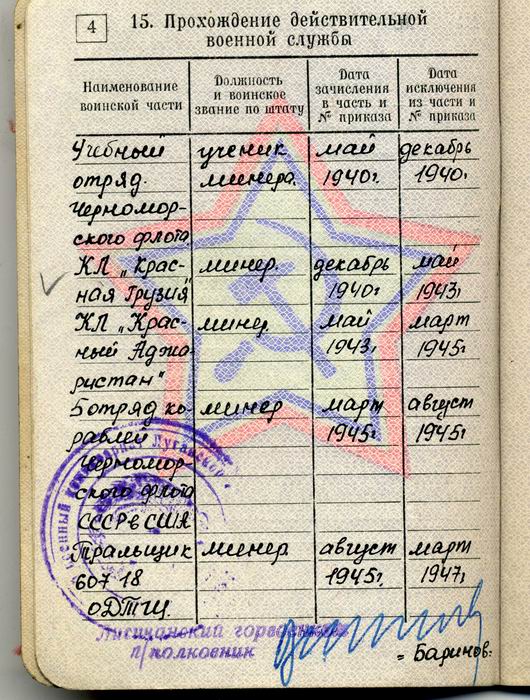 4
15. Прохождение действительной
военной службы
Наименование
воинской части
Должность
и воинское
звание по штату
Дата
зачисления
в часть и
№ приказа
Дата
исключения
из части и
№ приказа
Учебный ученик май декабрь
отряд минера 1940г. 1940г.
Черномор-
ского флота
КЛ „Крас- минер. декабрь май
ная Грузия" 1940г 1943г
КЛ „Крас- минер. май март
ный Аджа- 1943г 1945г
ристан"
5 отряд ко- минер март август
раблей 1945г 1945г
Черномор-
ского флота
СССР в США
Тральщик минер август март
607 18 1945г. 1947г
ОДТЩ
Лисичанский горвоенком
п/полковник
- Баринов.